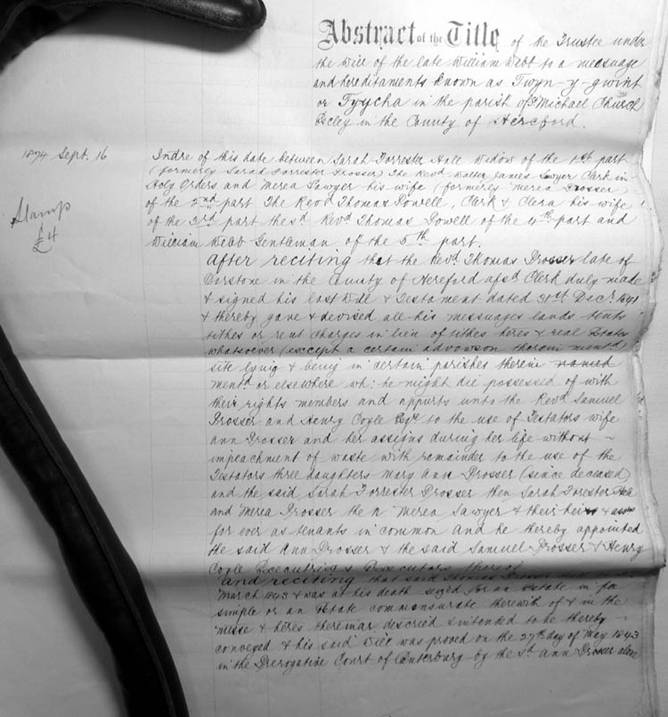 Abstract of the Title of the Trustee under
the Will of the late William Webb to a messuage
and hereditaments known as Twyn-y-gwint
or Tyycha in the parish of St Michael Church
Escley in the County of Hereford.
1874 Sept. 16
Stamp
£4
Indre of this date between Sarah Forrester Hall Widow of the 1st part
(formerly Sarah Forrester Prosser) The Revd Walter James Sawyer Clerk in
Holy Orders and Merea Sawyer his wife (formerly Merea Prosser
of the 2nd part The Revd Thomas Powell, Clerk & Clera his wife
of the 3rd part the sd Revd Thomas Powell of the 4th part and
William Webb Gentleman of the 5th part.
After reciting that the Revd Thomas Prosser late of
Dorstone in the County of Hereford afsd Clerk duly made
& signed his last Will & Testament dated 31st Decr 1841
& thereby gave & devised all his messuages lands tents
tithes or rent charges in lieu of tithes heres & real Estate
whatsoever (except a certain advowson therein mentd
site lying & being in certain parishes therein named
mentd or elsewhere wh: he might die possessed of with
their rights members and appurts unto the Revd Samuel
Prosser and Henry Coyle Esqre to the use of Testators wife
Ann Prosser and her assigns during her life without
impeachment of waste with remainder to the use of the
Testators three daughters Mary Ann Prosser (since deceased)
and the said Sarah Forrester Prosser then Sarah Forrester Hall
and Merea Prosser the n Merea Sawyer & their heirs & ass
for ever as tenants in common And he thereby appointed
the said Ann Prosser & the said Samuel Prosser & Henry
Coyle Executrix & Executors thereof
And reciting that said Thomas
March 1843 & was at his death seized for an estate in fee
simple or an Estate commensurate therewith of & in the
messe & heres thereinar descried & intended to be thereby
conveyed & his said Will was proved on the 27th day of May 1843
in the Prerogative Court of Canterbury by the sd Ann Prosser alone